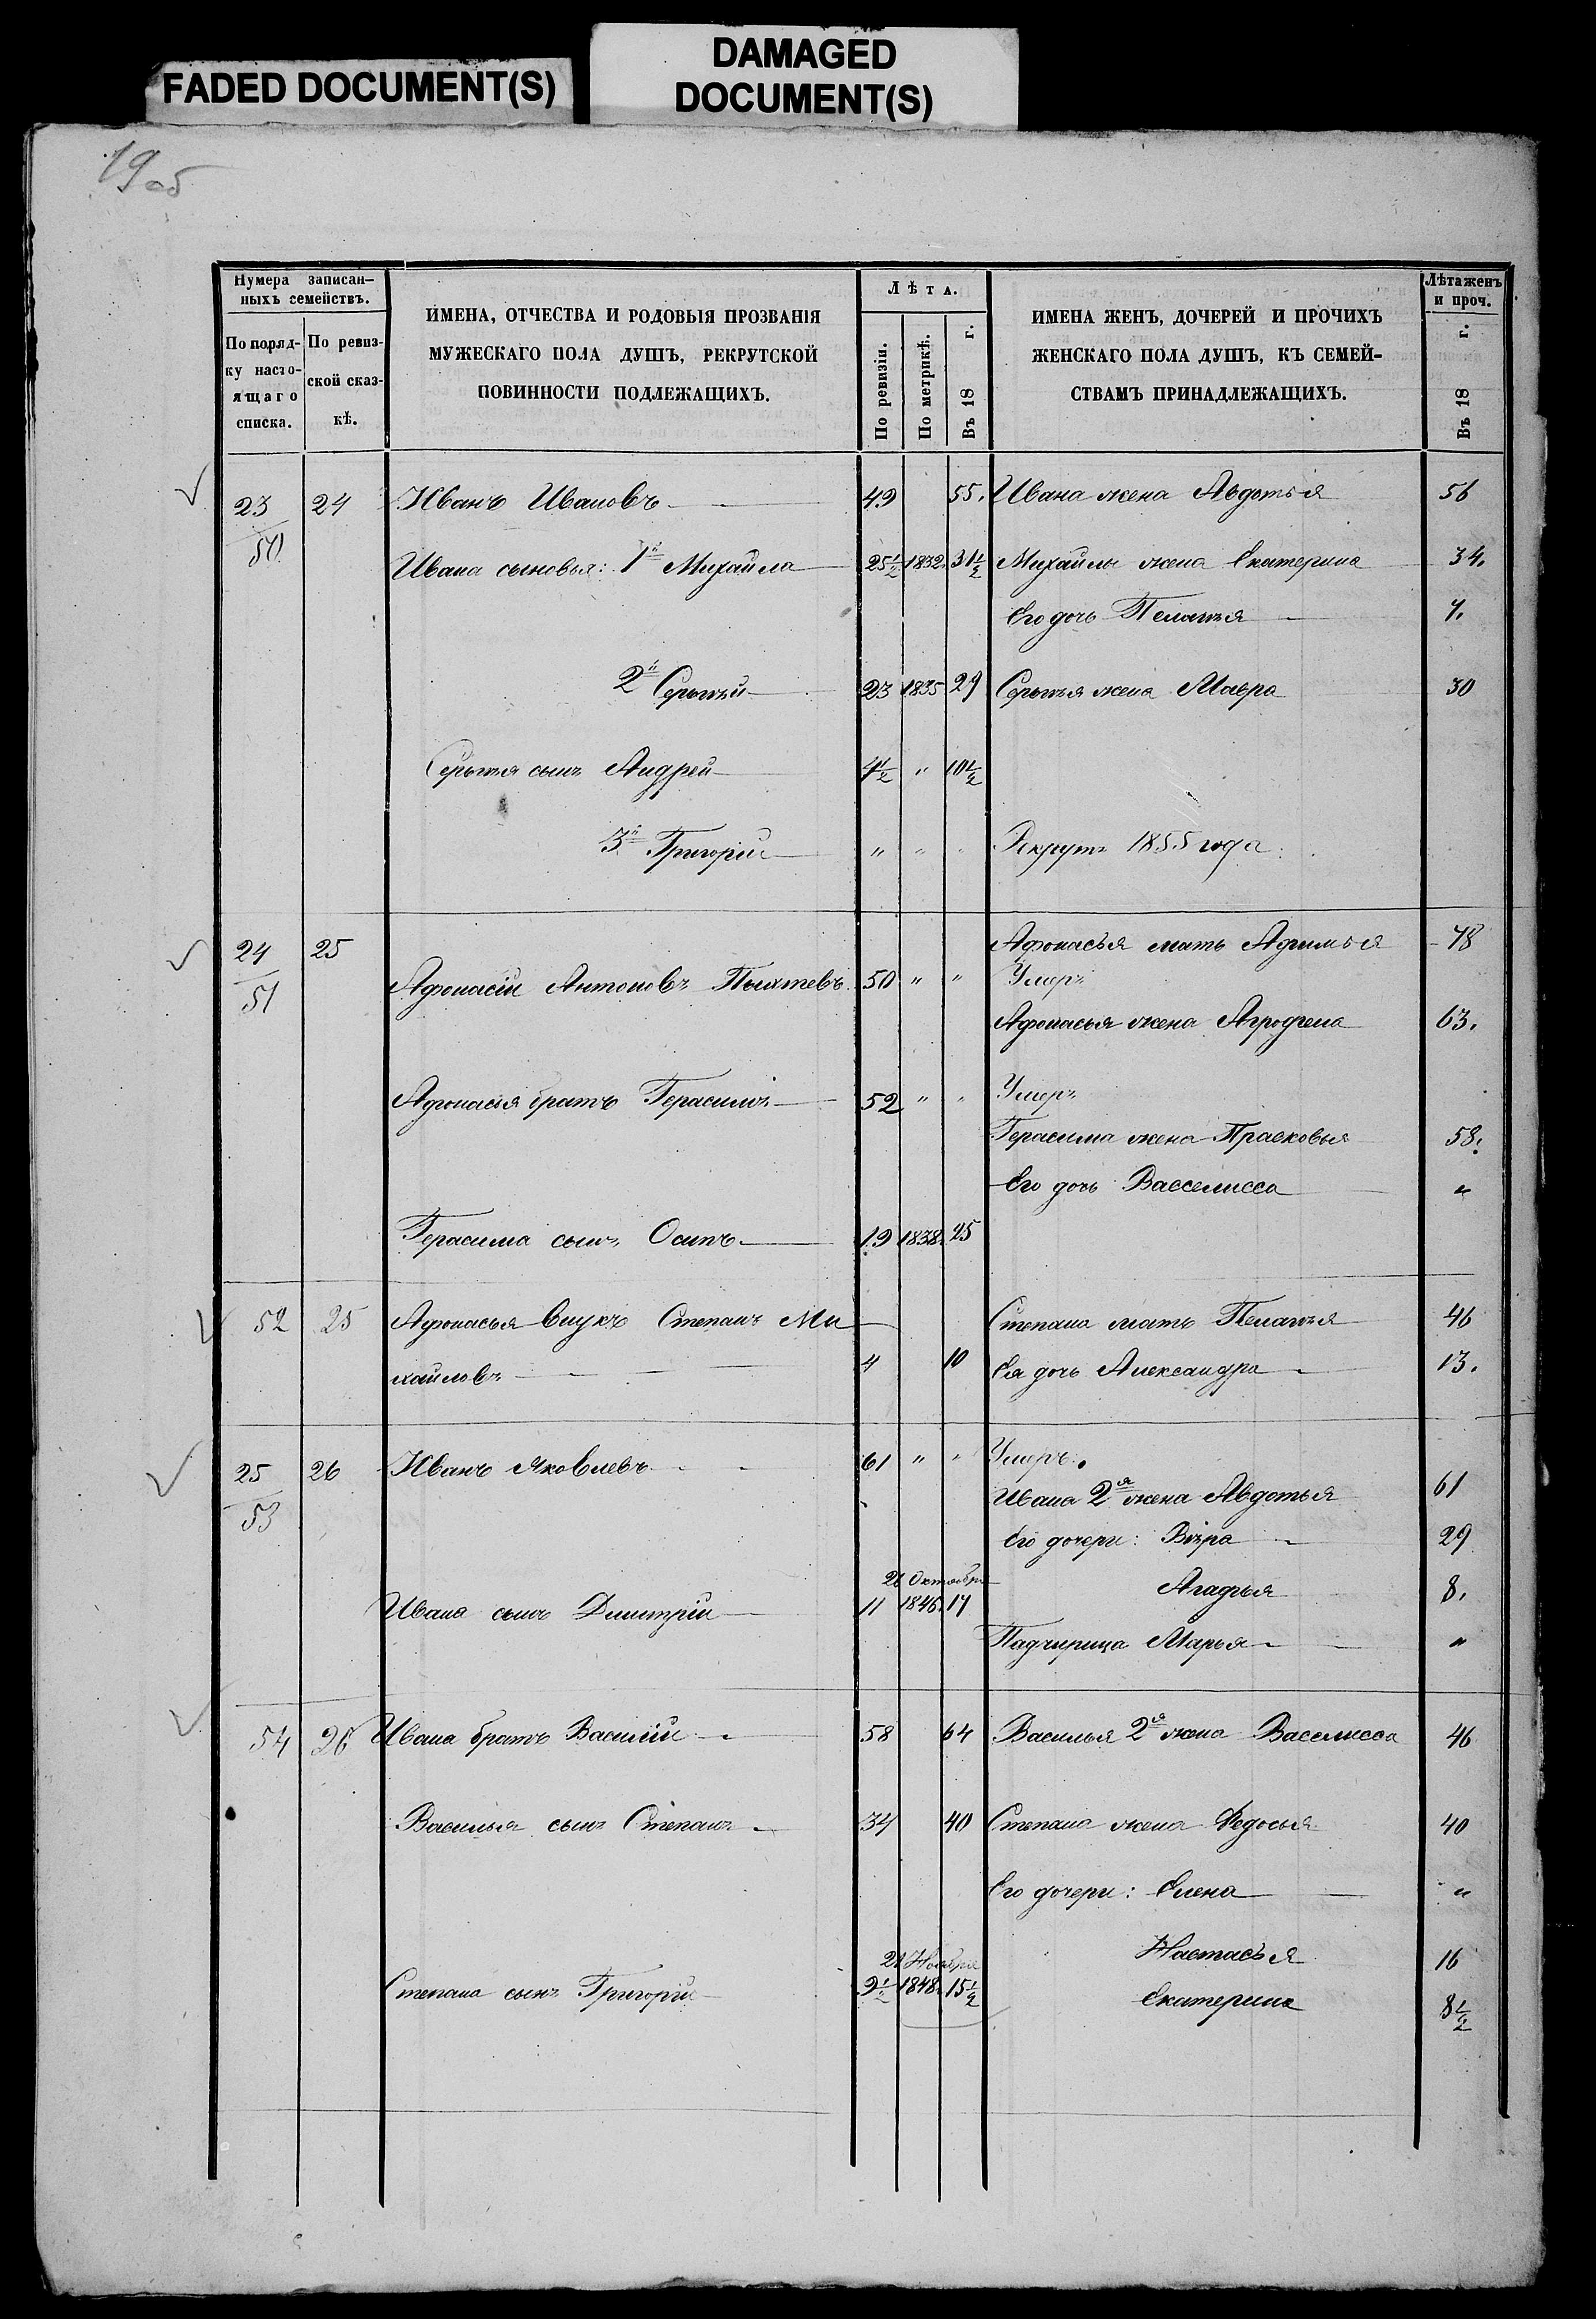 FADED DOCUMENT(S)
DAMAGED
DOCUMENT(S)
19 об
Нумера записан-
ныхъ семействъ.
По поряд-
ку насто-
ящаго
списка.
По ревиз-
ской сказ-
кѣ.
ИМЕНА, ОТЧЕСТВА И РОДОВЫЯ ПРОЗВАНІЯ
МУЖЕСКАГО ПОЛА ДУШЪ, РЕКРУТСКОЙ
ПОВИННОСТИ ПОДЛЕЖАЩИХЪ.
Лѣта.
По ревизіи.
По метрикѣ.
Въ 18 г.
ИМЕНА ЖЕНЪ, ДОЧЕРЕЙ И ПРОЧИХЪ
ЖЕНСКАГО ПОЛА ДУШЪ, КЪ СЕМЕЙ-
СТВАМЪ ПРИНАДЛЕЖАЩИХЪ.
Лѣта женъ
и проч.
Въ 18 г.
23 24 Иванъ Ивановъ 49 55. Ивана жена Авдотья 56
50
Ивана сыновья: 1й Михайла 25½ 1832. 31½ Михайлы жена Екатерина 34.
Его дочь Пелагѣя 7.
2й Сергѣй 23 1835 29 Сергѣя жена Мавра 30
Сергѣя сынъ Андрей 4½ " 10½
3й Григорій " " " Рекрутъ 1855 года.
24 25 Афонасья мать Афимья 78
51 Афонасій Антоновъ Пыхтевъ 50 " " Умеръ
Афонасья жена Аграфена 63.
Афонасія братъ Герасимъ 52 " " Умеръ
Герасима жена Прасковья 58.
Его дочь Васселисса "
Герасима сынъ Осипъ 19 1838. 25
52 25 Афонасья внукъ Степанъ Ми Степана мать Пелагѣя 46
хайловъ 4 10 Ея дочь Александра 13.
25 26 Иванъ Яковлевъ 61 " " Умеръ.
53 Ивана 2я жена Авдотья 61
Его дочери: Вѣра 29
26 Октября
Ивана сынъ Димитрій 11 1846. 17 Агафья 8.
Падчирица Марья "
54 26 Ивана братъ Василій 58 64 Василья 2я жена Васелисса 46
Василья сынъ Степанъ 34 40 Степана жена Федосья 40
Его дочери: Елена "
Настасья 16
21 Ноября
Степана сынъ Григорій 9½ 1848. 15½ Екатерина 8½